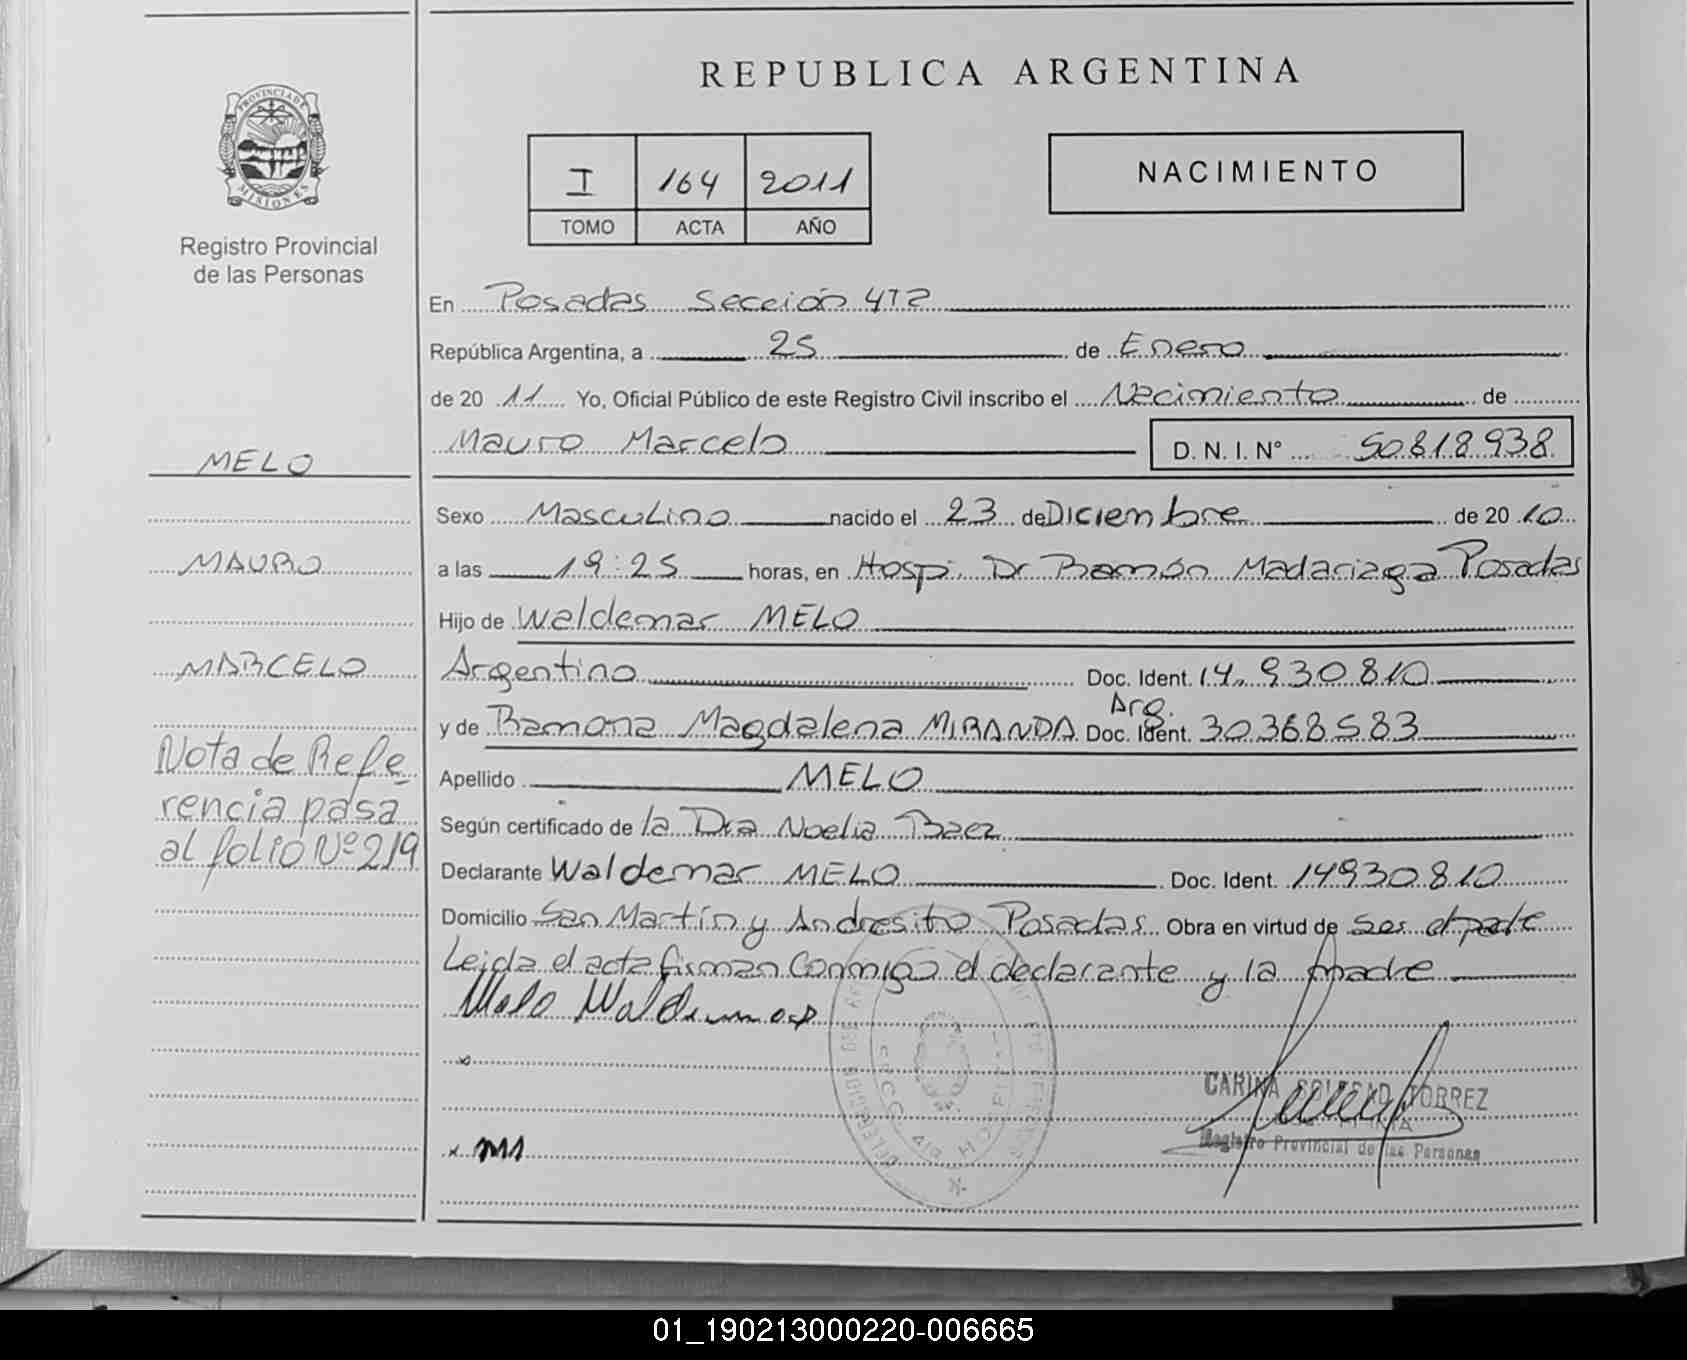 REPUBLICA ARGENTINA
PROVINCIA DE
MISIONES
Registro Provincial
de las Personas
I 164 2011
TOMO ACTA AÑO
NACIMIENTO
En Posadas Sección 4ta
República Argentina, a 25 de Enero
de 2011 Yo, Oficial Público de este Registro Civil inscribo el Nacimiento de
Mauro Marcelo D. N. I. N° 50.818.938
MELO
MAURO
MARCELO
Nota de Refe
rencia pasa
al folio Nº 219
Sexo Masculino nacido el 23 de Diciembre de 2010
a las 19:25 horas, en Hosp. Dr Ramón Madariaga Posadas
Hijo de Waldemar MELO
Argentino Doc. Ident. 14.930810
Arg.
y de Ramona Magdalena MIRANDA Doc. Ident. 30368583
Apellido MELO
Según certificado de la Dra Noelia Baez
Declarante Waldemar MELO Doc. Ident. 14930810
Domicilio San Martín y Andresito Posadas Obra en virtud de ser el padre
Leida el acta firman conmigo el declarante y la madre
Melo Waldemar
x
x mm
CARINA SOLEDAD TORREZ
Registro Provincial de las Personas
01_190213000220-006665